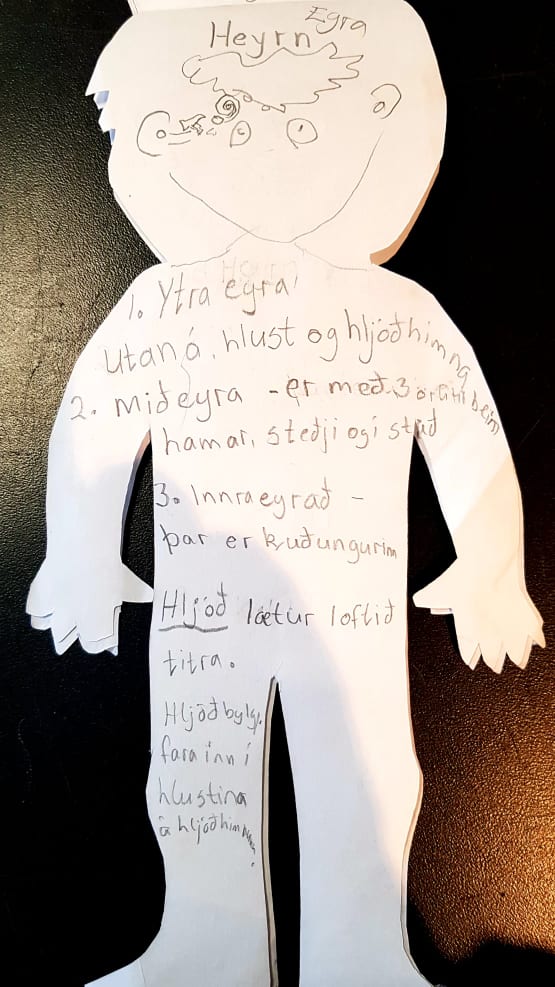 Egra
Heyrn
1. Ytra eyra
utaná, hlust og hljóðhimna
2. miðeyra - er með 3 örlítil bein
hamar, steðji og í stað
3. Innraeyrað -
þar er kuðungurinn
Hljóð lætur loftið
titra.
Hljóðbylgj.
fara inn í
hlustina
á hljóðhimnuna.